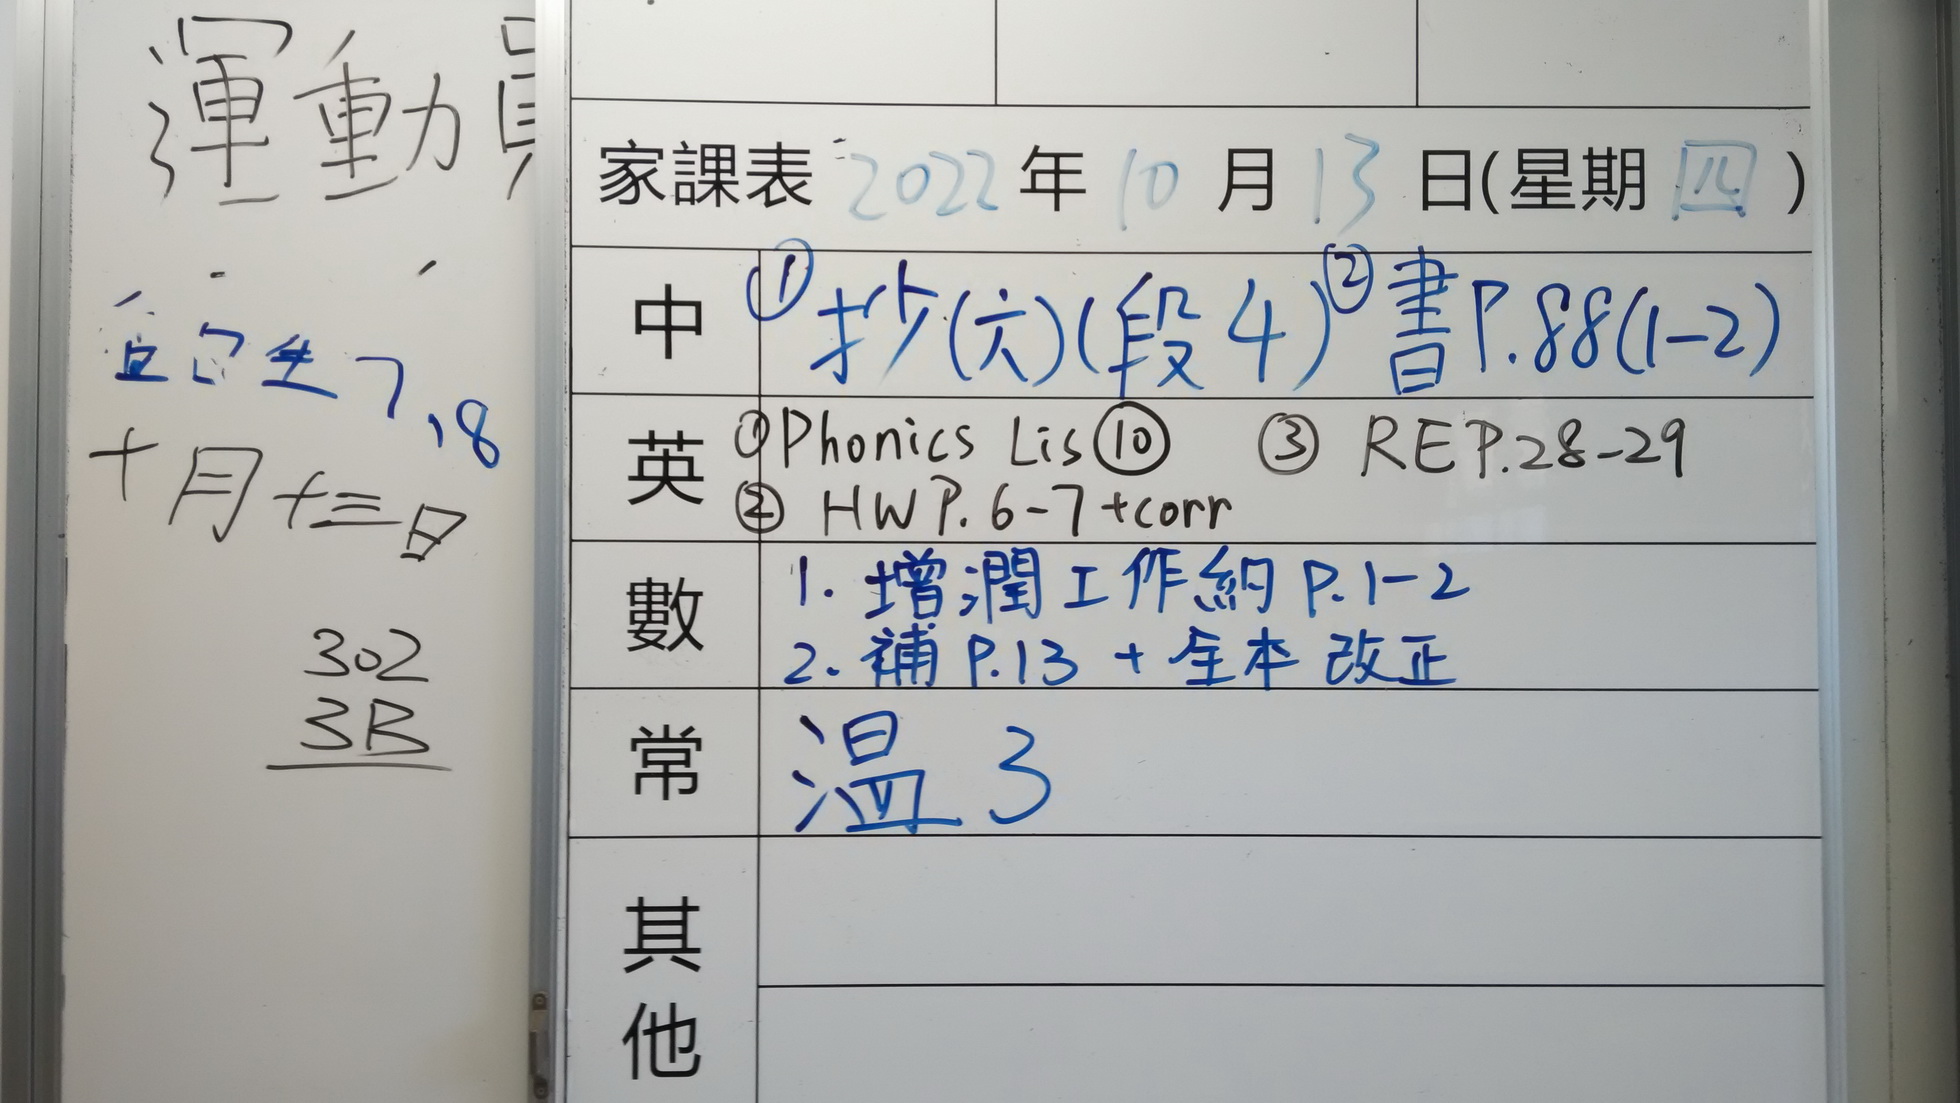 運動員
直日生 7,8
十月十三日
302
3B
家課表 2022年10月13日(星期四)
中 ①抄(六)(段4) ②書P.88(1-2)
英 ①Phonics Lis⑩ ③ REP.28-29
② HWP.6-7+corr
數 1. 增潤工作紙P.1-2
2. 補P.13 + 全本改正
常 溫3
其他